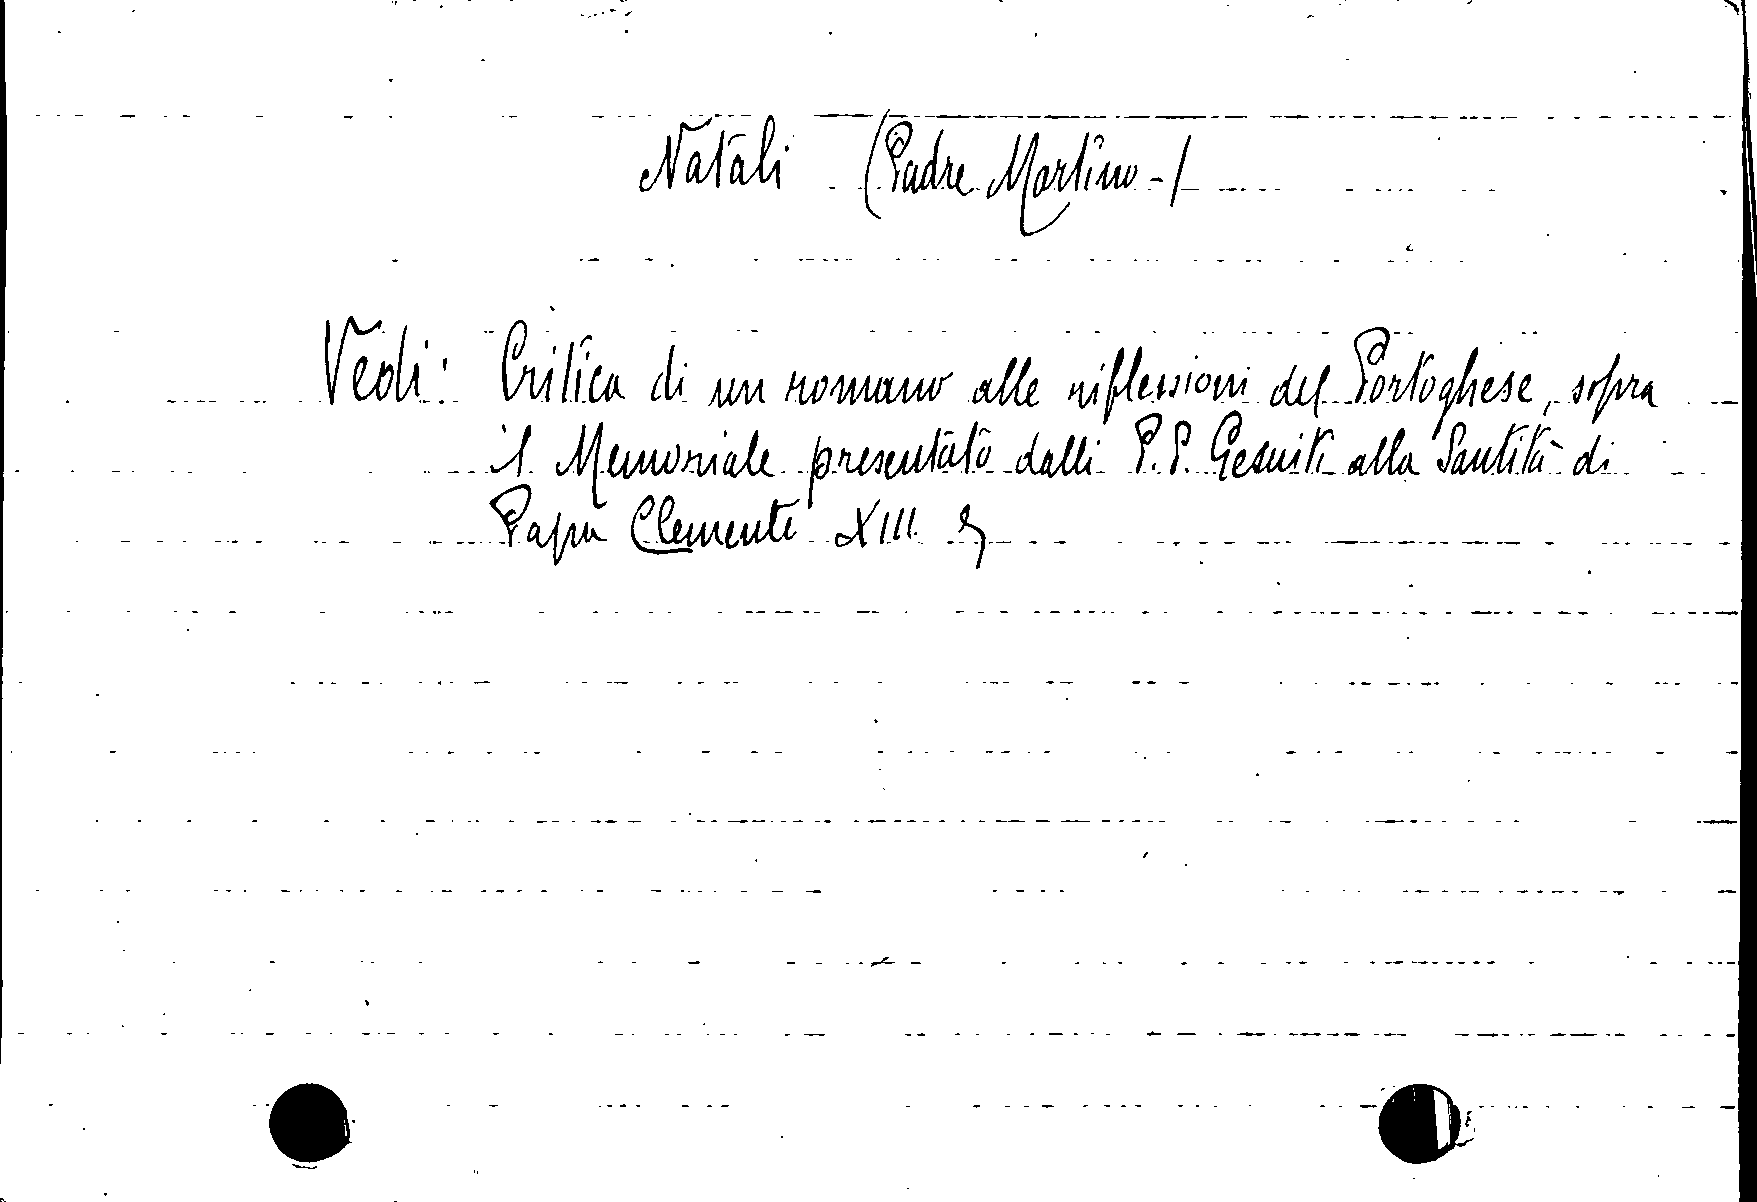 Natali (Padre Martino-)
Vedi: Critica di un romano alle riflessioni del Portoghese, sopra
il Memoriale presentato dalli P.P. Gesuiti alla Santità di
Papa Clemente XIII